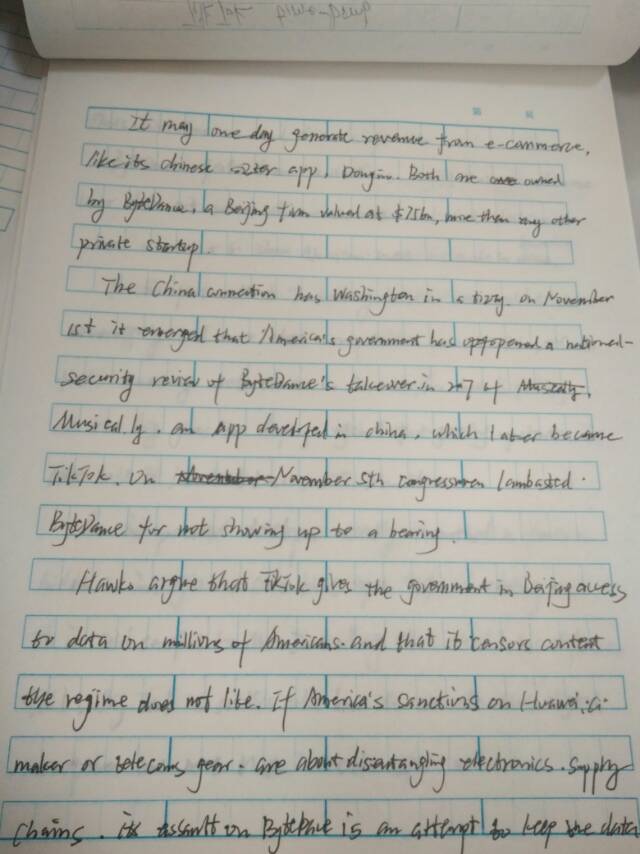 It may one day generate revenue from e-commerce,
like its chinese sister app, Douyin. Both are owned
by ByteDance, a Beijing firm valued at $75bn, more than any other
private startup.
The China connection has Washington in a tizzy. on November
1st it emerged that America's government has opened a national-
security review of ByteDance's takeover in 2017 of
Musical.ly, an app developed in china, which later became
TikTok. On November 5th congressmen lambasted
ByteDance for not showing up to a hearing.
Hawks argue that TikTok gives the government in Beijing access
to data on millions of Americans. and that it censors content
the regime does not like. If America's sanctions on Huawei, a
maker or telecoms gear. are about disentangling electronics. supply
chains. its assault on ByteDance is an attempt to keep the data